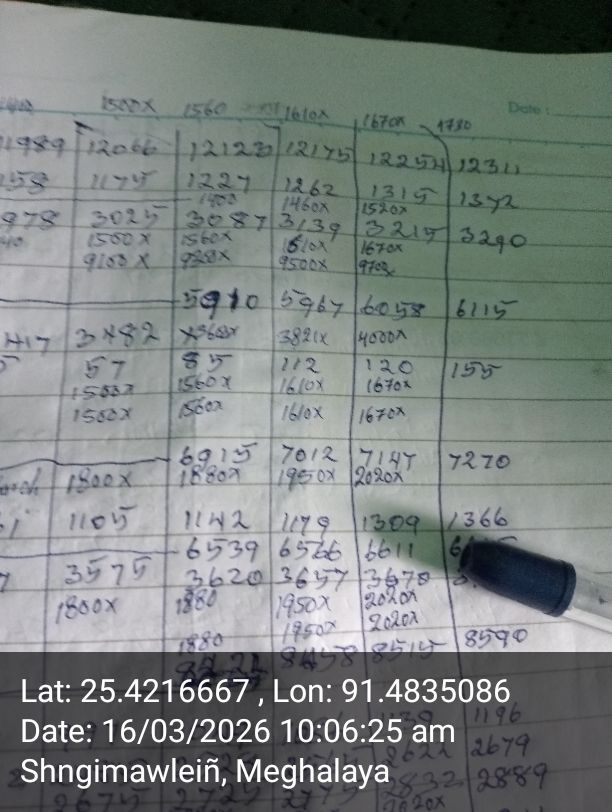 1500x 1560 1610x 1670x 1730
Date :
11989 12066 12123 12175 12254 12311
158 1175 1227 1262 1315 1372
1400 1460x 1520x
978 3025 3087 3139 3215 3290
1500x 1560x 1610x 1670x
9100x 9500x
5910 5967 6058 6115
417 3482 3821x 4000x
57 85 112 120 155
1500x 1560x 1610x 1670x
1500x 1560x 1610x 1670x
6915 7012 7147 7270
1800x 1880x 1950x 2020x
1105 1142 1179 1309 1366
6539 6566 6611
3575 3620 3657 3670
1800x 1880 1950x 2020x
1880 1950x 2020x
8458 8515 8590
Lat: 25.4216667 , Lon: 91.4835086
Date: 16/03/2026 10:06:25 am
Shngimawleiñ, Meghalaya
1196
2622 2679
2675 2725 2832 2889
2020x